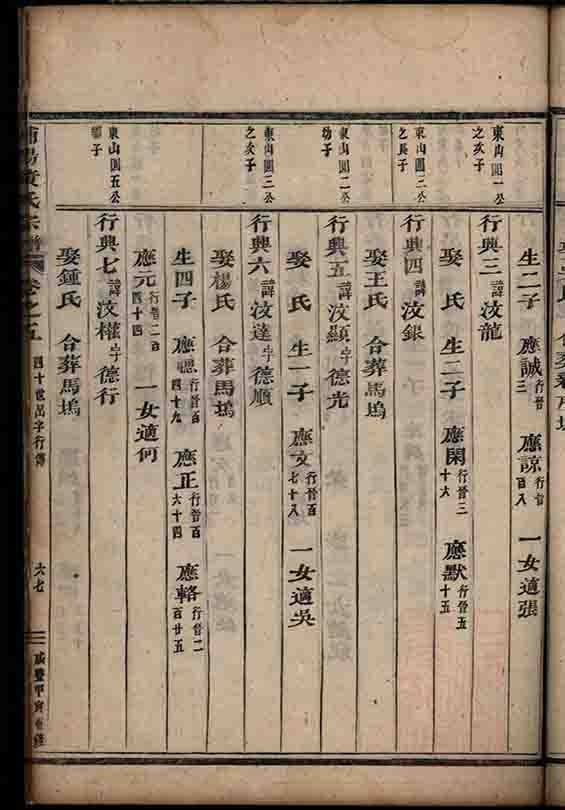 生二子 應誠行晉三 應諒行晉百八 一女適張
東山圓一公之次子
行興三諱汶龍
娶 氏 生二子 應閑行晉三十六 應默行晉五十五
東山圓二公之長子
行興四諱汶銀
娶王氏 合葬馬塢
東山圓二公幼子
行興五諱汶顯字德光
娶 氏 生一子 應文行晉百七十八 一女適吳
東山圓三公之次子
行興六諱汶達字德順
娶楊氏 合葬馬塢
生四子 應聰行晉百四十九 應正行晉百六十四 應輅行晉二百廿五
應元行晉二百四十四 一女適何
東山圓五公 子
行興七諱汶權字德行
娶鍾氏 合葬馬塢
浦陽黄氏宗譜 卷之五 四十世萬字行傳 六七 咸豐甲寅重修